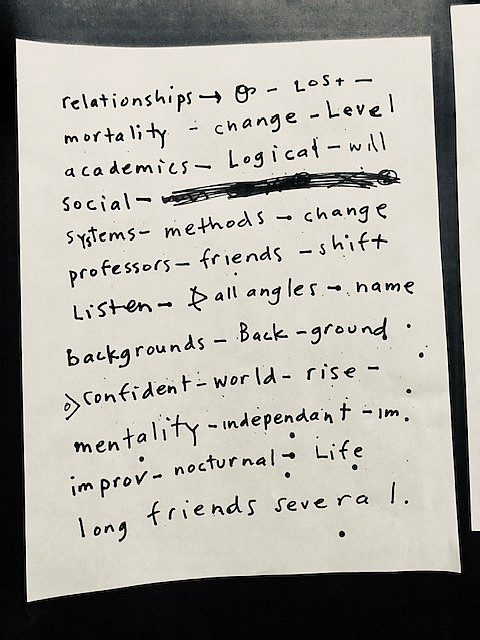 relationships → - Lost -
mortality - change - Level
academics - Logical - will
social -
systems - methods - change
professors - friends - shift
Listen - all angles - name
backgrounds - Back - ground
confident - world - rise -
mentality - independant - im.
improv - nocturnal - Life
long friends several.